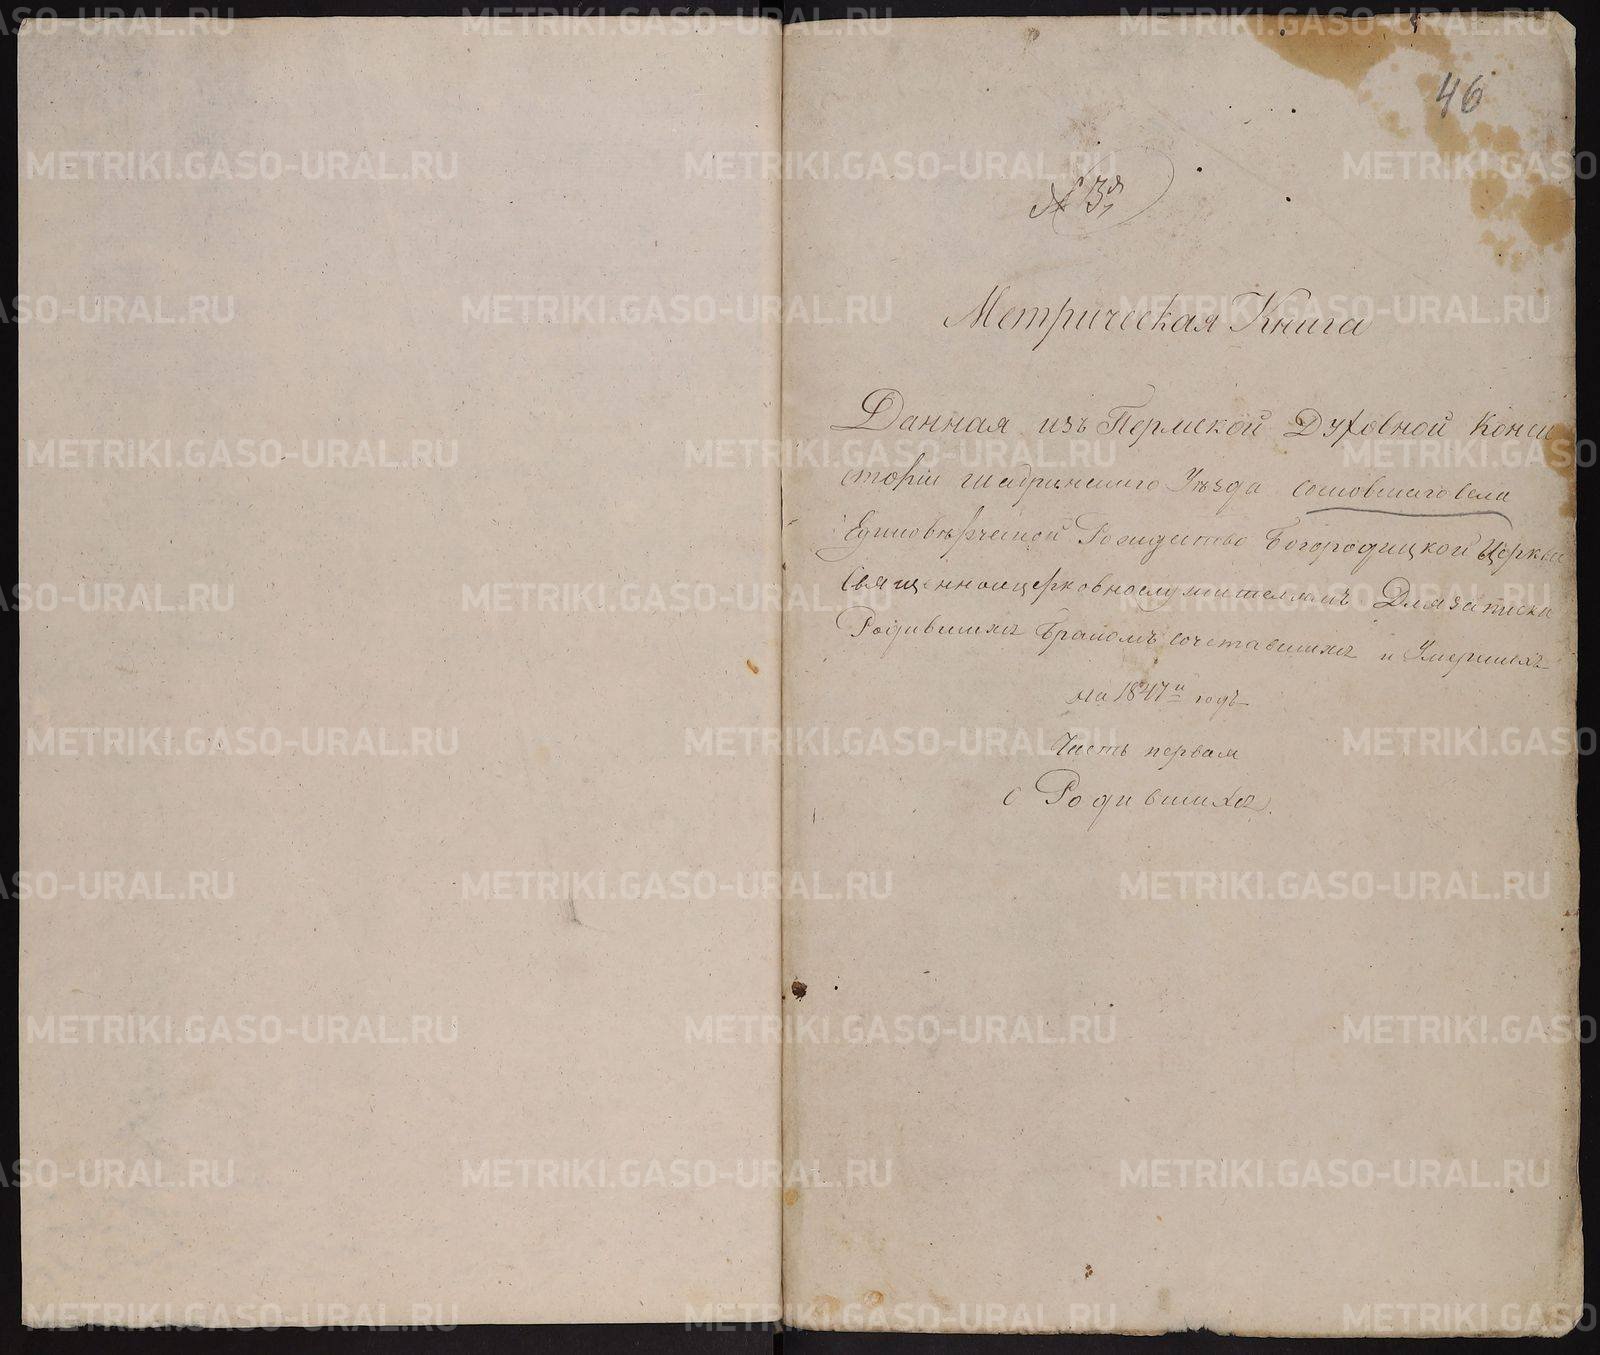 46
№ 3й
Метрическая Книга
Данная изъ Пермской Духовной Конси
сторіи шадринскаго Уѣзда сосновскаго села
Единовѣрческой Рождество Богородицкой Церкви
Священноицерковнослужителямъ Для записки
Родившихся Бракомъ сочетавшихся и Умершихъ
на 1847й годъ
Часть первая
о Родившихся.
METRIKI.GASO-URAL.RU